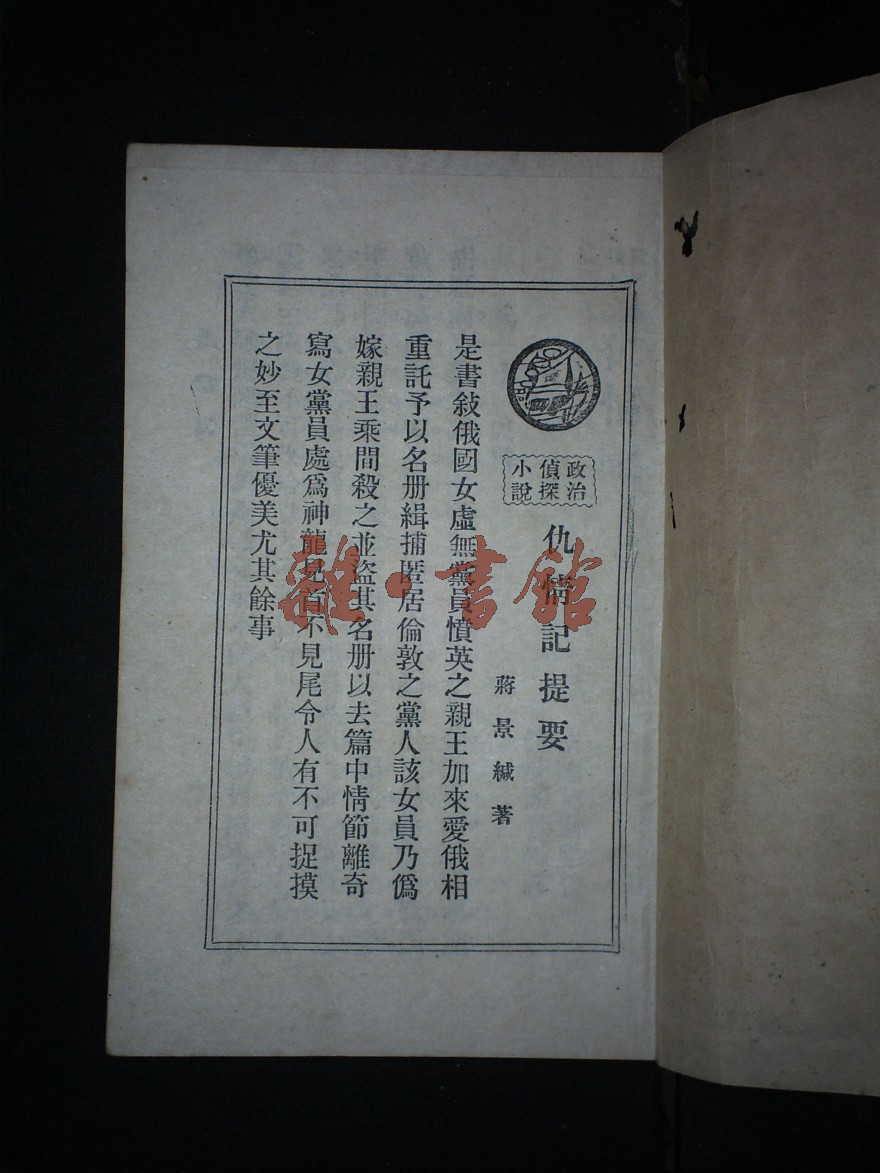 政治
偵探
小說
仇情記提要
蔣景緘著
是書敍俄國女虛無黨員憤英之親王加來愛俄相
重託予以名册緝捕匿居倫敦之黨人該女員乃僞
嫁親王乘間殺之並盜其名册以去篇中情節離奇
寫女黨員處爲神龍見首不見尾令人有不可捉摸
之妙至文筆優美尤其餘事
雜·書館